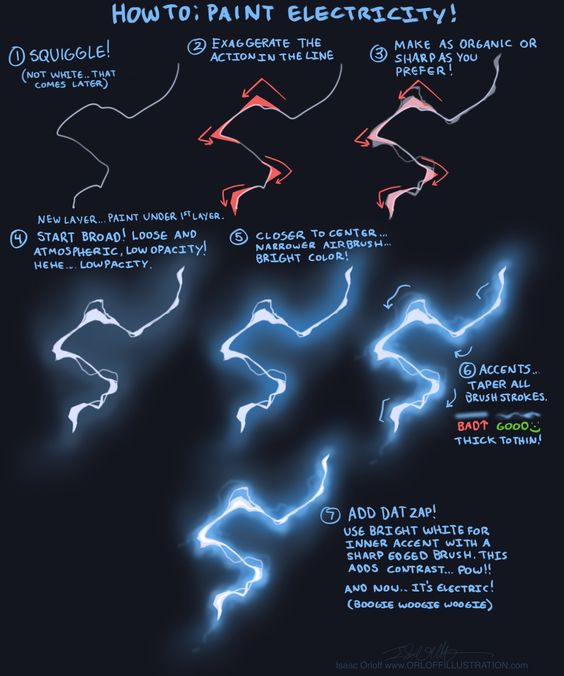 HOW TO: PAINT ELECTRICITY!
1 SQUIGGLE!
(NOT WHITE.. THAT
COMES LATER)
2 EXAGGERATE THE
ACTION IN THE LINE
3 MAKE AS ORGANIC OR
SHARP AS YOU
PREFER!
NEW LAYER... PAINT UNDER 1ST LAYER.
4 START BROAD! LOOSE AND
ATMOSPHERIC, LOW OPACITY!
HEHE... LOWPACITY.
5 CLOSER TO CENTER...
NARROWER AIRBRUSH...
BRIGHT COLOR!
6 ACCENTS...
TAPER ALL
BRUSH STROKES.
BAD↑ GOOD
THICK TO THIN!
7 ADD DAT ZAP!
USE BRIGHT WHITE FOR
INNER ACCENT WITH A
SHARP EDGED BRUSH. THIS
ADDS CONTRAST... POW!!
AND NOW.. IT'S ELECTRIC!
(BOOGIE WOOGIE WOOGIE)
Isaac Orloff www.ORLOFFILLUSTRATION.com